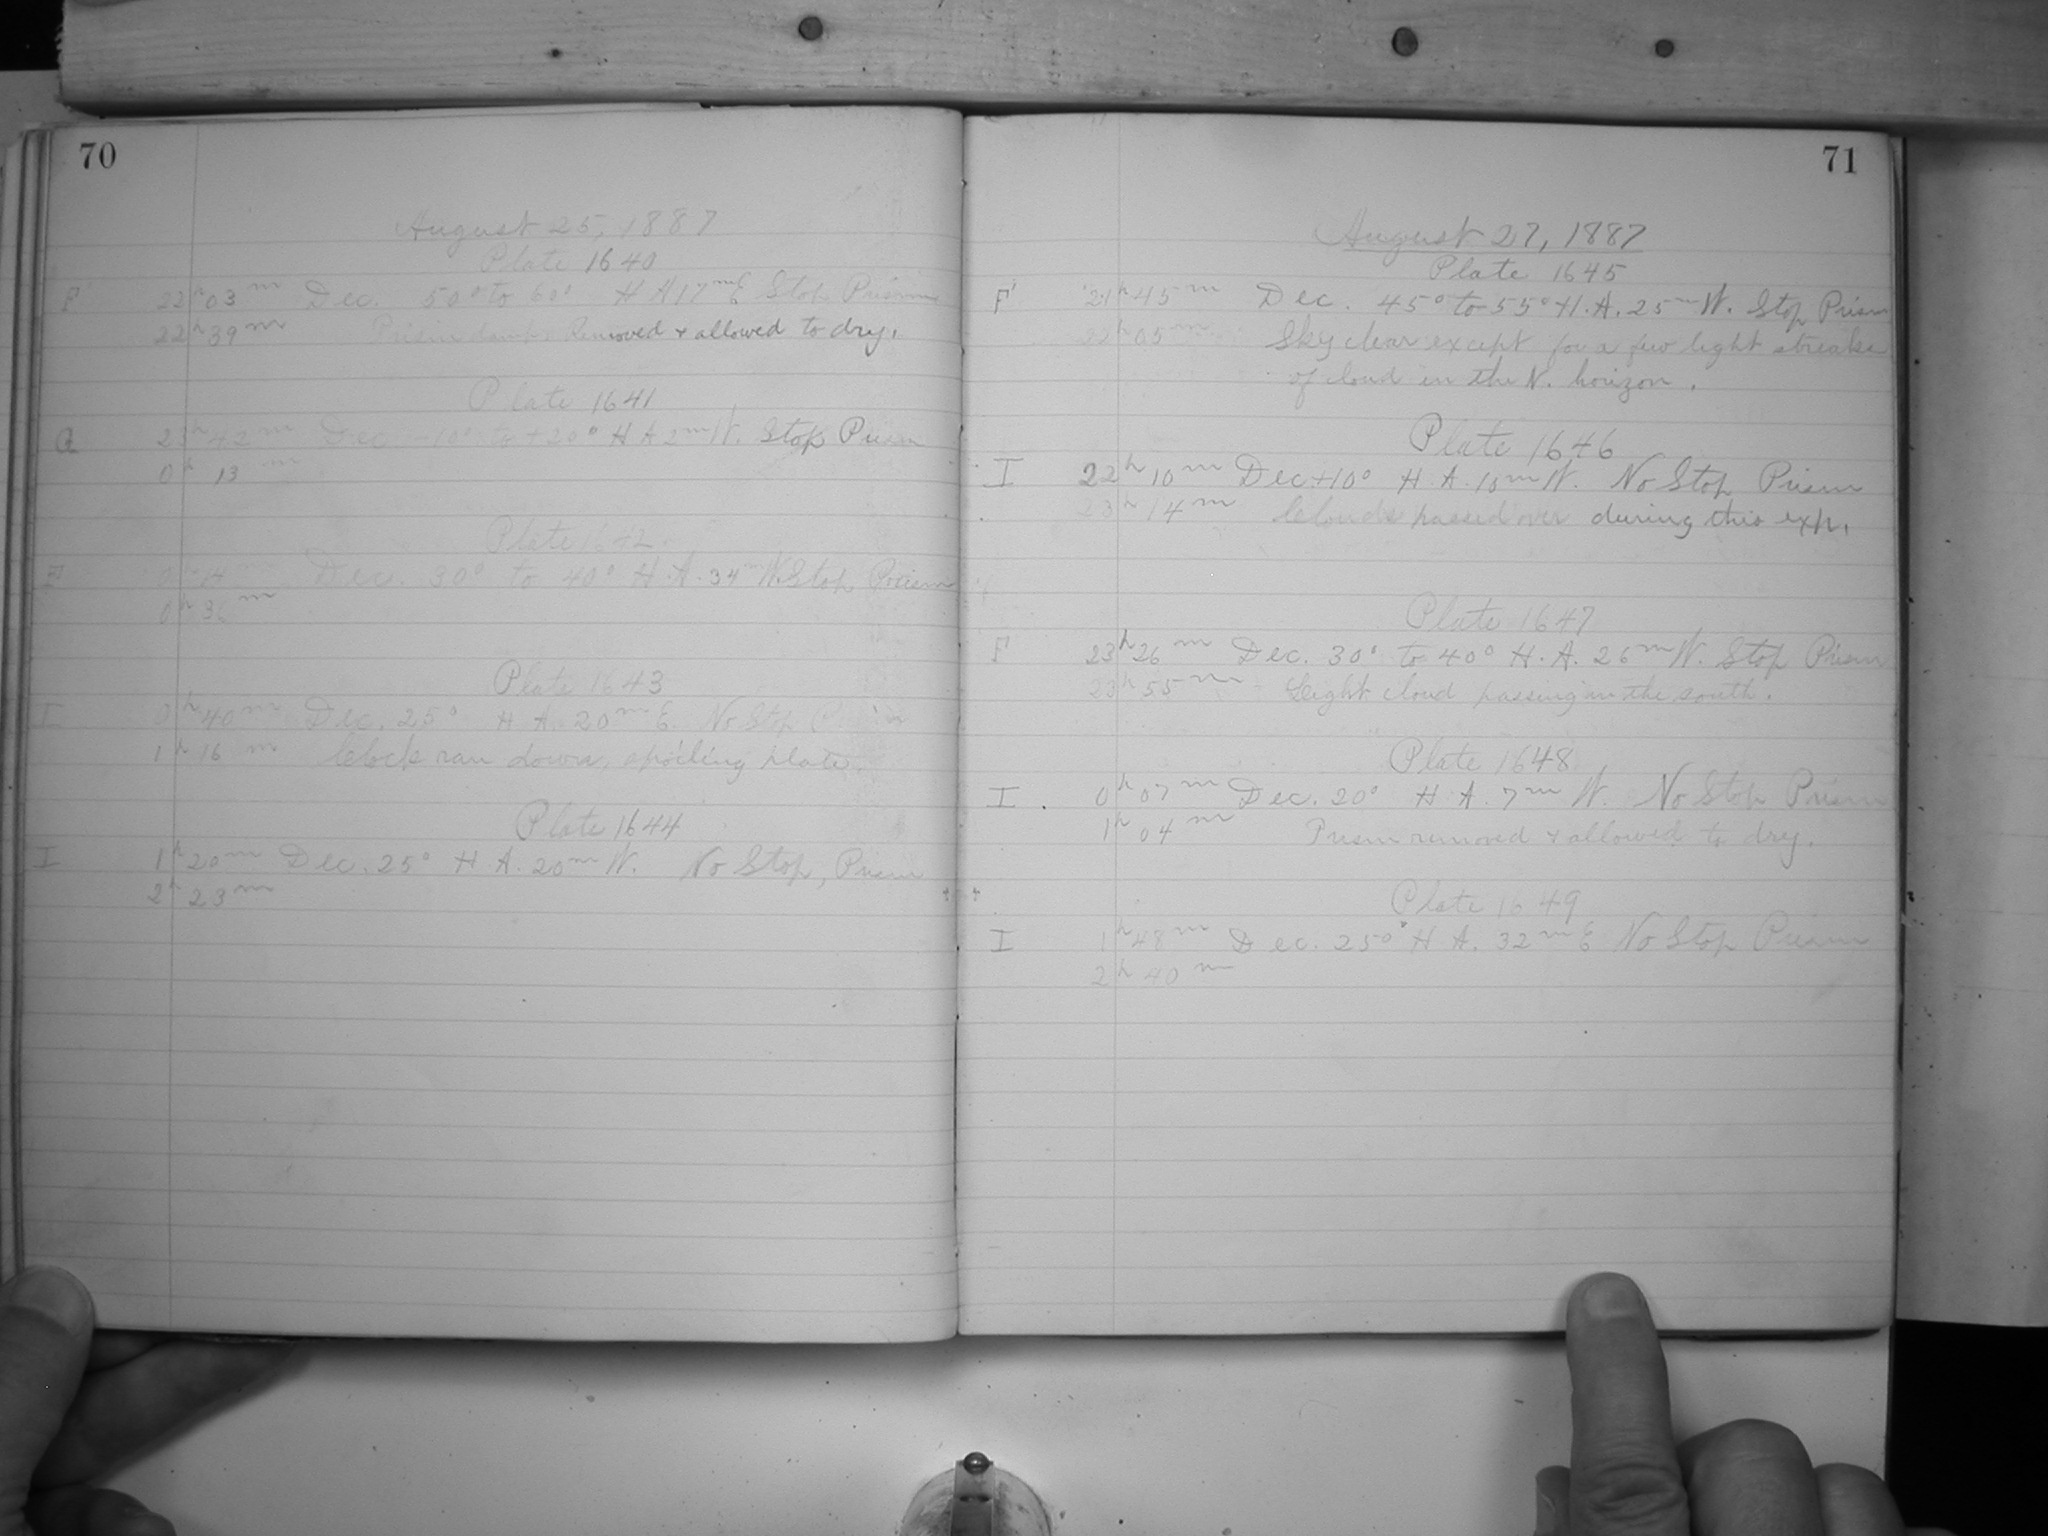 70
August 25, 1887
Plate 1640
F 22h 03m Dec. 50° to 60° H A 17m E Stop Prism
22h 39m Prism damp. Removed & allowed to dry.
Plate 1641
23h 42m Dec. -10° to +20° H A 2m W. Stop Prism
0h 13m
Plate 1642.
F 0h 14 Dec. 30° to 40° H. A. 34m W. Stop Prism
0h 36m
Plate 1643
I 0h 40m Dec. 25° H A. 20m E. No Stop Prism
1h 16m Clock ran down, spoiling plate.
Plate 1644
I 1h 20m Dec. 25° H A. 20m W. No Stop, Prism
2h 23m
71
August 27, 1887
Plate 1645
F 21h 45m Dec. 45° to 55° H. A. 25m W. Stop Prism
22h 05m Sky clear except for a few light streaks
of cloud in the N. horizon.
Plate 1646
I 22h 10m Dec +10° H. A. 10m W. No Stop Prism
23h 14m Clouds passed over during this exp.
Plate 1647
F 23h 26m Dec. 30° to 40° H. A. 26m W. Stop Prism
23h 55m Light cloud passing in the south.
Plate 1648
I. 0h 07m Dec. 20° H A. 7m W. No Stop Prism
1h 04m Prism removed & allowed to dry.
Plate 1649
I 1h 48m Dec. 25° H A. 32m E No Stop Prism
2h 40m